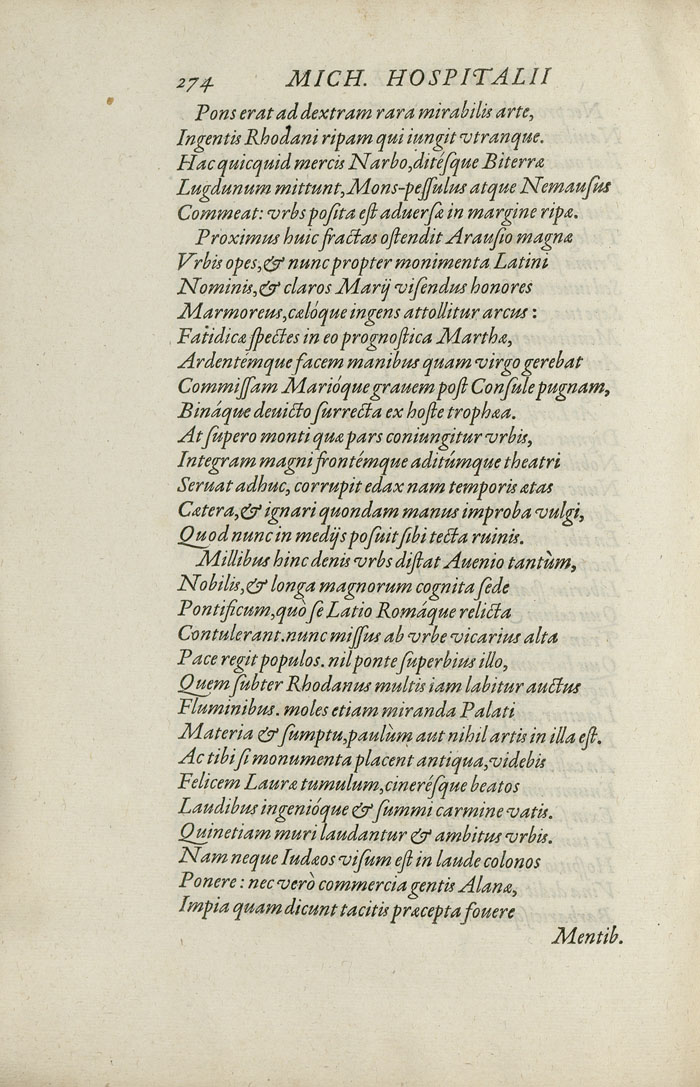 274 MICH. HOSPITALII
Pons erat ad dextram rara mirabilis arte,
Ingentis Rhodani ripam qui iungit vtranque.
Hac quicquid mercis Narbo, ditésque Biterræ
Lugdunum mittunt, Mons-peſſulus atque Nemauſus
Commeat: vrbs poſita eſt aduerſæ in margine ripæ.
Proximus huic fractas oſtendit Arauſio magnæ
Vrbis opes, & nunc propter monimenta Latini
Nominis, & claros Marij viſendus honores
Marmoreus, cælóque ingens attollitur arcus:
Fatidicæ ſpectes in eo prognoſtica Marthæ,
Ardentémque facem manibus quam virgo gerebat
Commiſſam Marióque grauem poſt Conſule pugnam,
Bináque deuicto ſurrecta ex hoſte trophæa.
At ſupero monti quæ pars coniungitur vrbis,
Integram magni frontémque aditúmque theatri
Seruat adhuc, corrupit edax nam temporis ætas
Cætera, & ignari quondam manus improba vulgi,
Quod nunc in medijs poſuit ſibi tecta ruinis.
Millibus hinc denis vrbs diſtat Auenio tantùm,
Nobilis, & longa magnorum cognita ſede
Pontificum, quò ſe Latio Romáque relicta
Contulerant. nunc miſſus ab vrbe vicarius alta
Pace regit populos. nil ponte ſuperbius illo,
Quem ſubter Rhodanus multis iam labitur auctus
Fluminibus. moles etiam miranda Palati
Materia & ſumptu, paulùm aut nihil artis in illa eſt.
Ac tibi ſi monumenta placent antiqua, videbis
Felicem Lauræ tumulum, cinerésque beatos
Laudibus ingenióque & ſummi carmine vatis.
Quinetiam muri laudantur & ambitus vrbis.
Nam neque Iudæos viſum eſt in laude colonos
Ponere: nec verò commercia gentis Alanæ,
Impia quam dicunt tacitis præcepta fouere
Mentib.